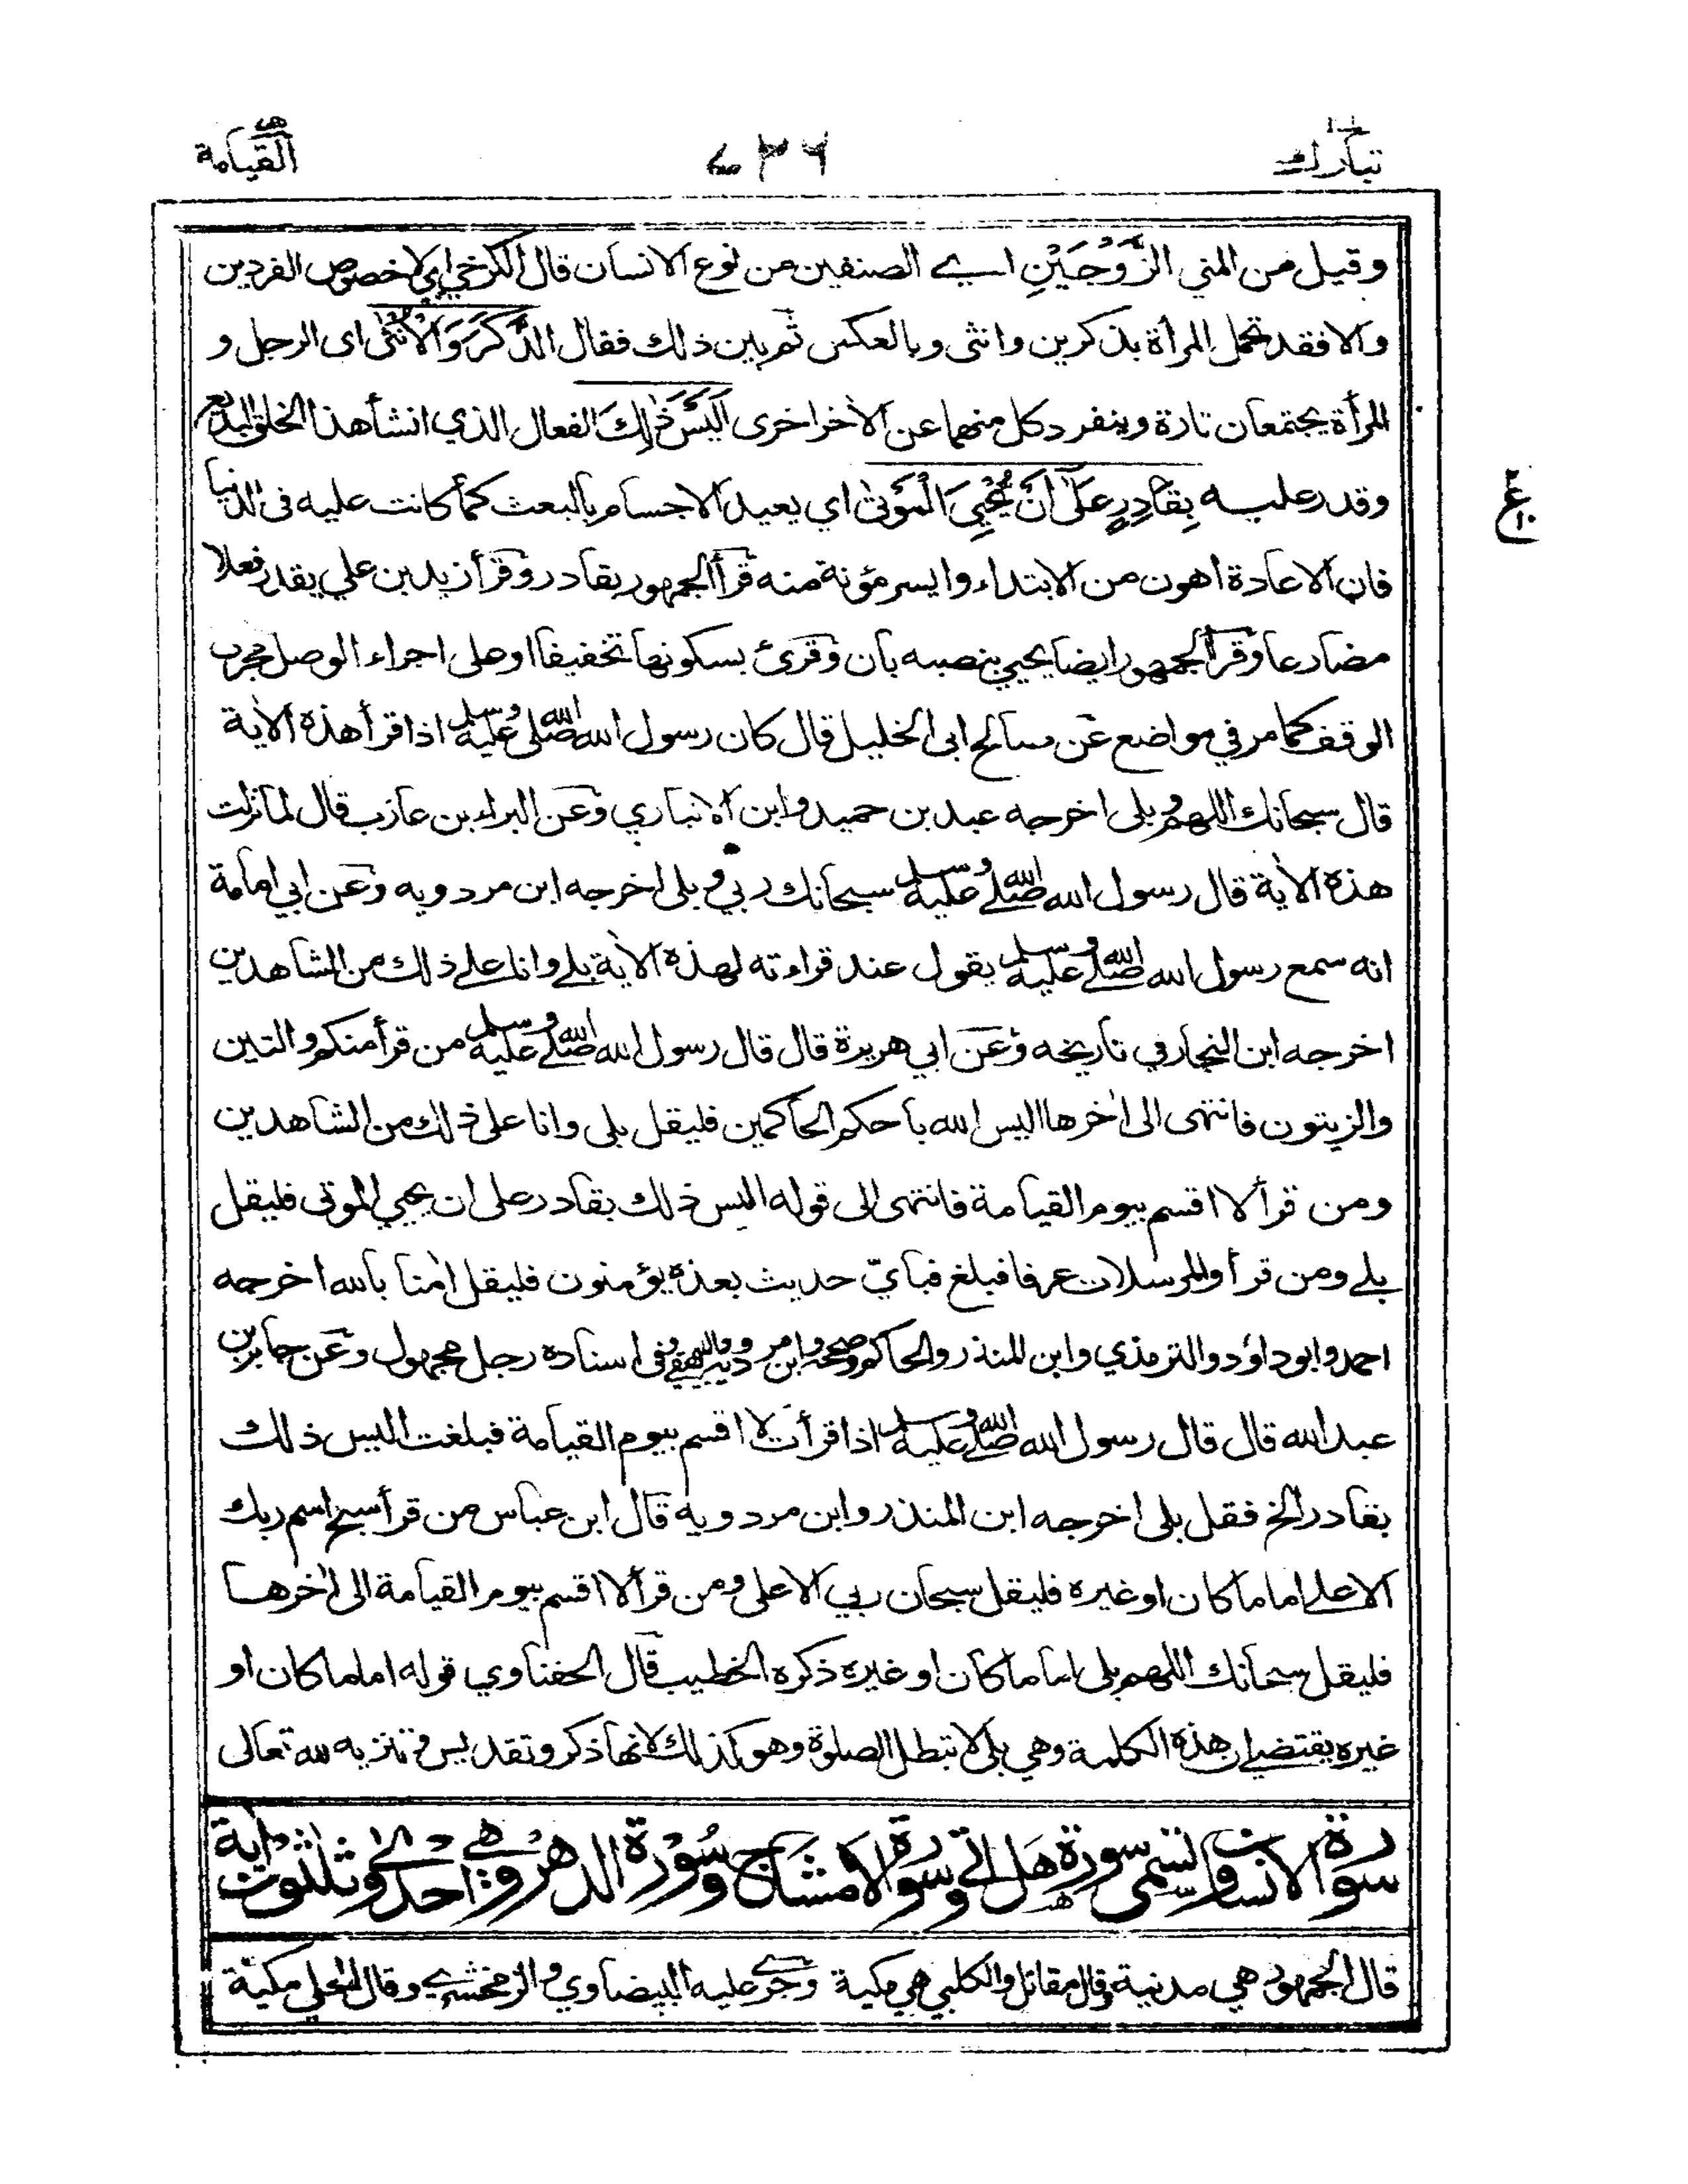 تبارك ٢٩
٤٣٦
القيٰمة
وقيل من المني الزَّوْجَيْنِ اي الصنفين من نوع الانسان قال الكرخي اي لا خصوص الفردين
والا فقد تحمل المرأة بذكرين وانثى وبالعكس ثم بين ذلك فقال الذَّكَرَ وَالْأُنْثٰى اى الرجل و
المرأة يجتمعان تارة وينفرد كل منهما عن الاٰخر اخرى اَلَيْسَ ذٰلِكَ الفعال الذي انشأ هذا الخلق البديع
وقدر عليه بِقَادِرٍ عَلٰٓى اَنْ يُّحْيِيَ الْمَوْتٰى اي يعيد الاجسام بالبعث كما كانت عليه فى الدنيا
فان الاعادة اهون من الابتداء وايسر مؤنة منه قرأ الجمهور بقادر وقرأ زيد بن علي يقدر فعلا
مضارعا وقرأ الجمهور ايضا يحيي بنصبه بان وقرئ بسكونها تخفيفا او على اجراء الوصل مجرى
الوقف كما مر في مواضع عن صالح ابى الخليل قال كان رسول الله صلى الله عليه وسلم اذا قرأ هذه الاٰية
قال سبحانك اللهم وبلى اخرجه عبد بن حميد وابن الانباري وعن البراء بن عازب قال لما نزلت
هذه الاٰية قال رسول الله صلى الله عليه وسلم سبحانك ربي وبلى اخرجه ابن مردويه وعن ابي امامة
انه سمع رسول الله صلى الله عليه وسلم يقول عند قراءته لهذه الاٰية بلے وانا علے ذلك من الشاهدين
اخرجه ابن النجار في تاريخه وعن ابي هريرة قال قال رسول الله صلى الله عليه وسلم من قرأ منكم والتين
والزيتون فانتهى الى اٰخرها اليس الله باحكم الحاكمين فليقل بلى وانا على ذلك من الشاهدين
ومن قرأ لا اقسم بيوم القيامة فانتهى الى قوله اليس ذلك بقادر على ان يحيي الموتى فليقل
بلے ومن قرأ والمرسلات عرفا فبلغ فبايّ حديث بعده يؤمنون فليقل اٰمنا بالله اخرجه
احمد وابو داؤد والترمذي وابن المنذر والحاكم وصححه وابن مردويه والبيهقي وفى اسناده رجل مجهول وعن جابر بن
عبد الله قال قال رسول الله صلى الله عليه وسلم اذا قرأت لا اقسم بيوم القيامة فبلغت اليس ذلك
بقادر الخ فقل بلى اخرجه ابن المنذر وابن مردويه قال ابن عباس من قرأ سبح اسم ربك
الاعلے اماما كان او غيره فليقل سبحان ربي الاعلى ومن قرأ لا اقسم بيوم القيامة الى اٰخرها
فليقل سبحانك اللهم بلى اماما كان او غيره ذكره الخطيب قال الحفناوي قوله اماما كان او
غيره يقتضي ان هذه الكلمة وهي بلى لا تبطل الصلوة وهو كذلك لانها ذكر وتقديس وتنزيه لله تعالى
سورة الانسان وتسمى سورة هل اتى وسورة الامشاج وسورة الدهر وهي احدى وثلثون اٰية
قال الجمهور هي مدنية وقال مقاتل والكلبي هي مكية وجرى عليه البيضاوي والزمخشري وقال المحلي مكية